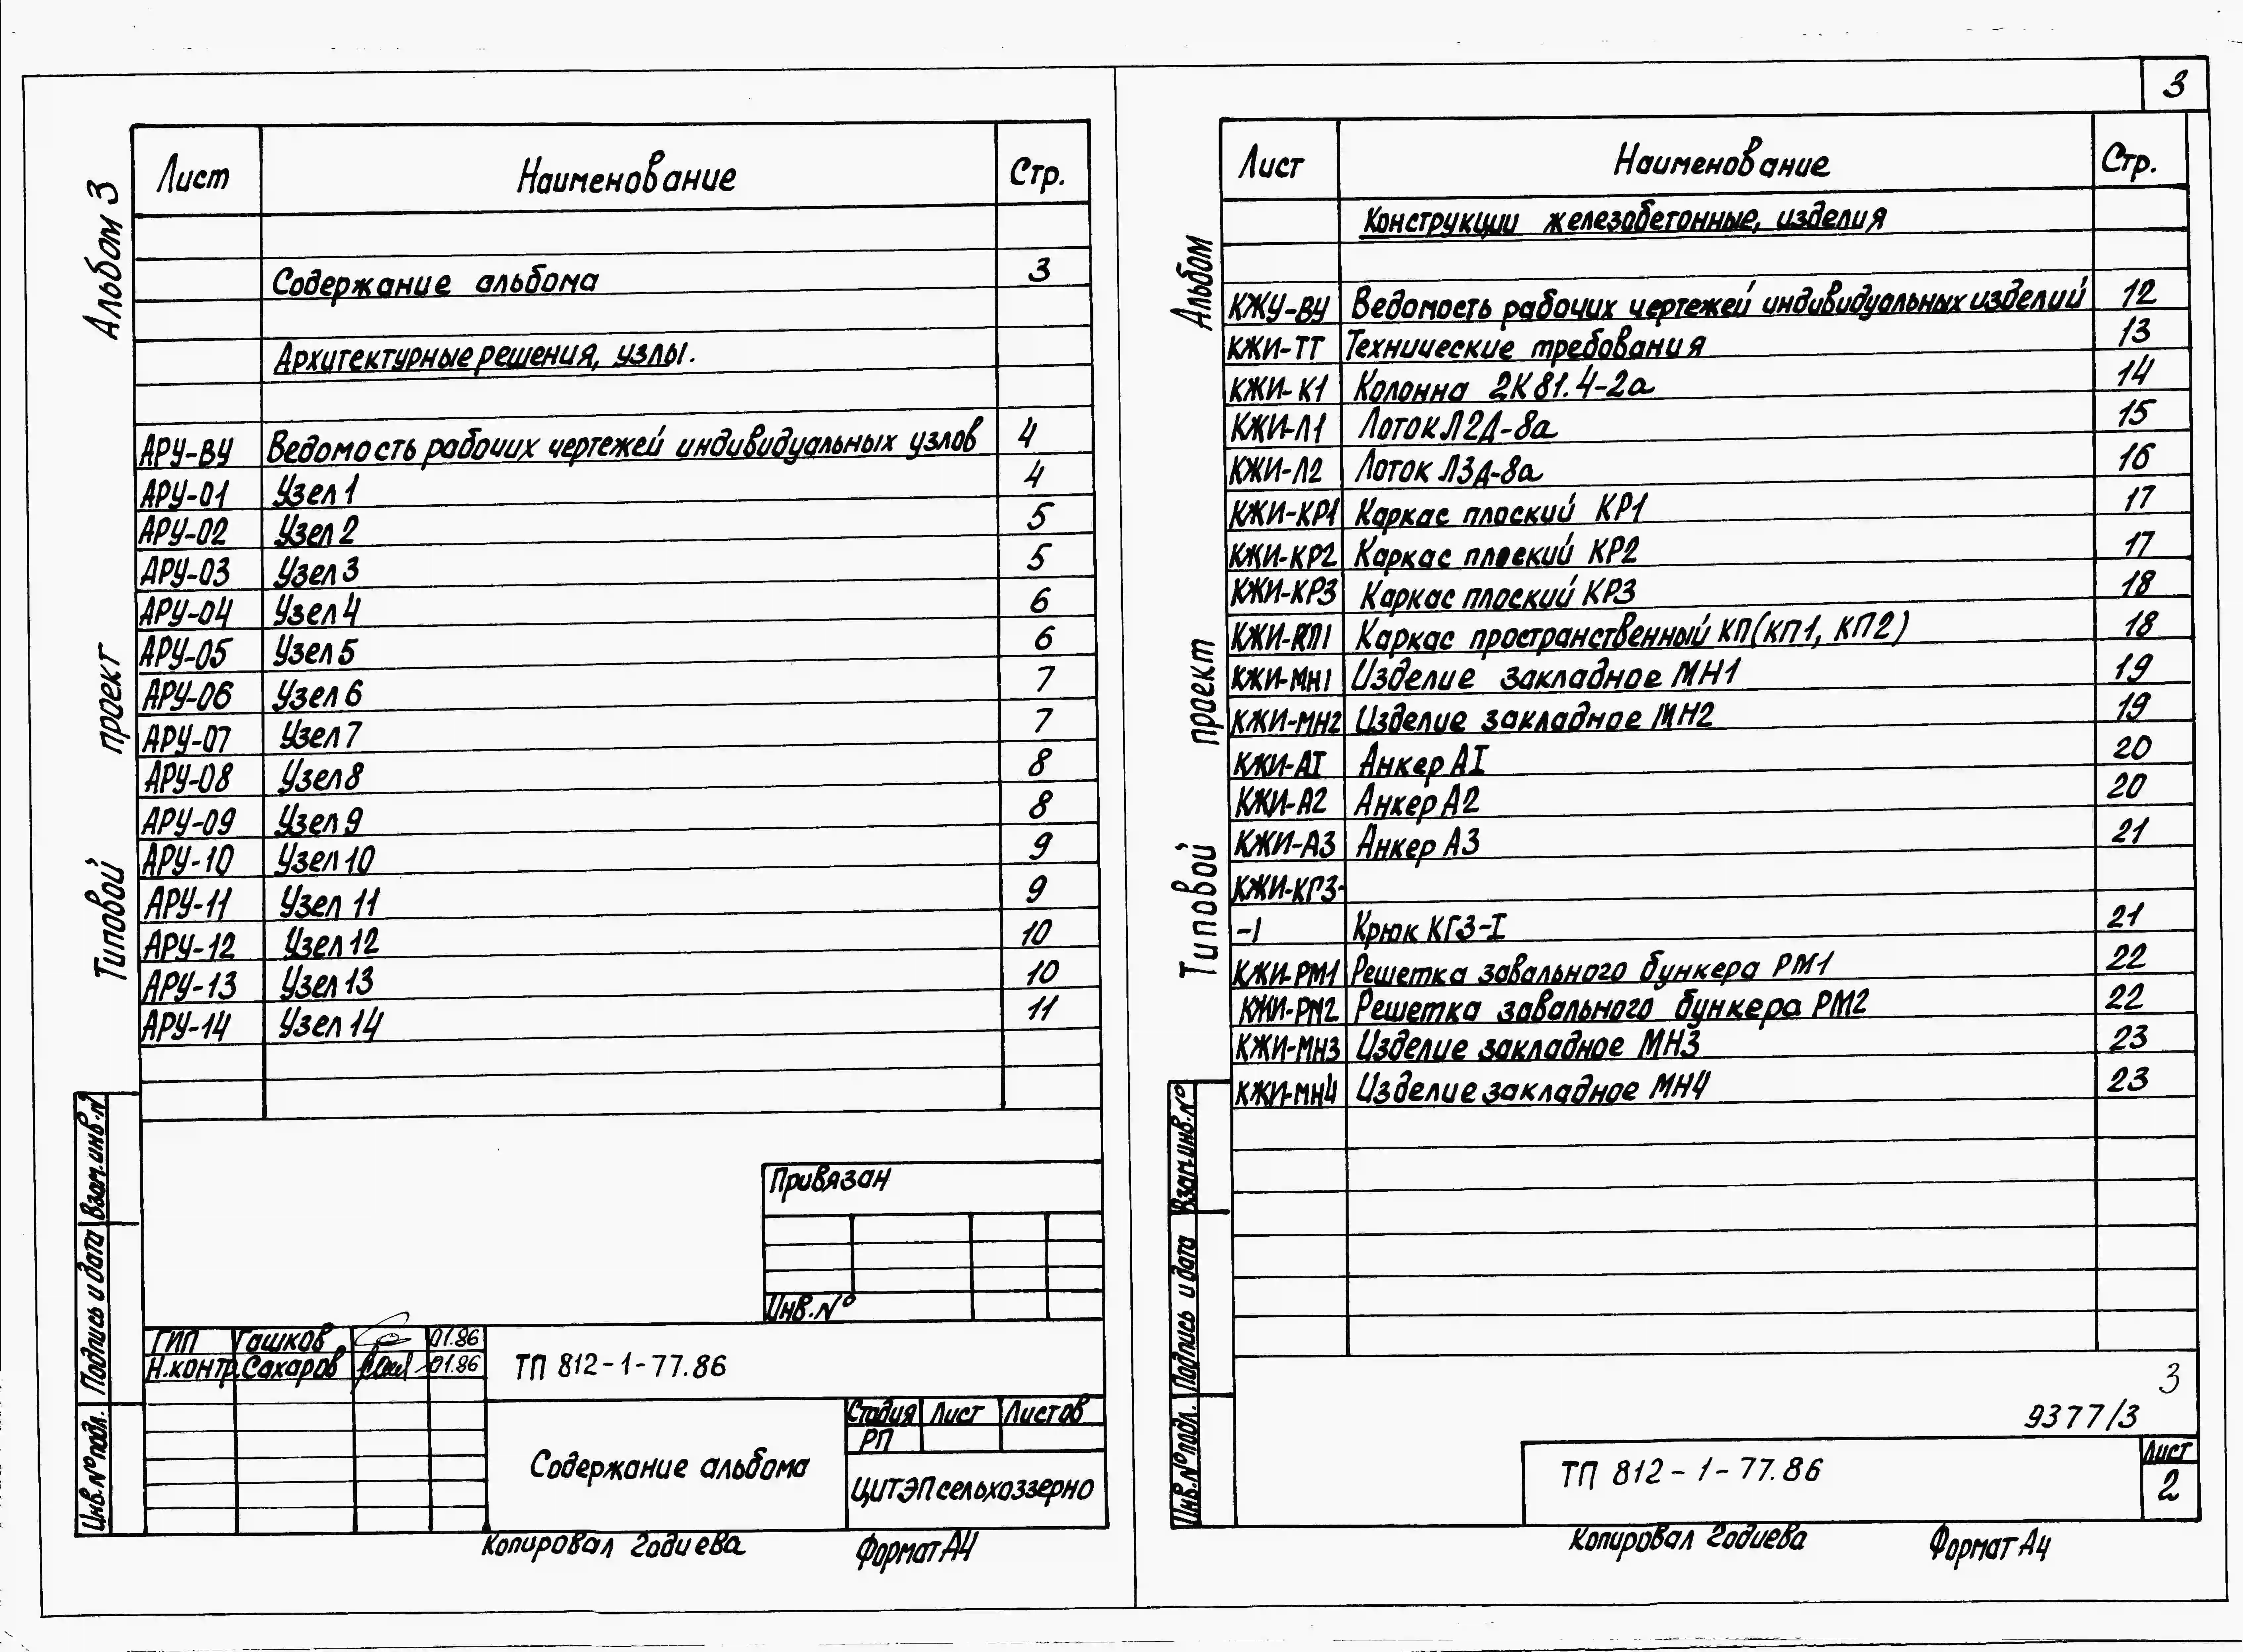 3
Альбом 3
проект
Типовой
Лист Наименование Стр.
Содержание альбома 3
Архитектурные решения, узлы.
АРУ-ВУ Ведомость рабочих чертежей индивидуальных узлов 4
АРУ-01 Узел 1 4
АРУ-02 Узел 2 5
АРУ-03 Узел 3 5
АРУ-04 Узел 4 6
АРУ-05 Узел 5 6
АРУ-06 Узел 6 7
АРУ-07 Узел 7 7
АРУ-08 Узел 8 8
АРУ-09 Узел 9 8
АРУ-10 Узел 10 9
АРУ-11 Узел 11 9
АРУ-12 Узел 12 10
АРУ-13 Узел 13 10
АРУ-14 Узел 14 11
Взам.инв.№
Подпись и дата
Инв.№подл.
Привязан
Инв.№
ГИП Гашков 01.86
Н.контр. Сахаров 01.86
ТП 812-1-77.86
Содержание альбома
Стадия Лист Листов
РП
ЦИТЭПсельхоззерно
Копировал Годиева Формат А4
Альбом
проект
Типовой
Лист Наименование Стр.
Конструкции железобетонные, изделия
КЖУ-ВУ Ведомость рабочих чертежей индивидуальных изделий 12
КЖИ-ТТ Технические требования 13
КЖИ-К1 Колонна 2К81.4-2а 14
КЖИ-Л1 Лоток Л2Д-8а 15
КЖИ-Л2 Лоток Л3Д-8а 16
КЖИ-КР1 Каркас плоский КР1 17
КЖИ-КР2 Каркас плоский КР2 17
КЖИ-КР3 Каркас плоский КР3 18
КЖИ-КП1 Каркас пространственный КП(КП1, КП2) 18
КЖИ-МН1 Изделие закладное МН1 19
КЖИ-МН2 Изделие закладное МН2 19
КЖИ-АI Анкер АI 20
КЖИ-А2 Анкер А2 20
КЖИ-А3 Анкер А3 21
КЖИ-КГ3-
-1 Крюк КГ3-I 21
КЖИ-РМ1 Решетка завального бункера РМ1 22
КЖИ-РМ2 Решетка завального бункера РМ2 22
КЖИ-МН3 Изделие закладное МН3 23
КЖИ-МН4 Изделие закладное МН4 23
Взам.инв.№
Подпись и дата
Инв.№подл.
3
9377/3
ТП 812-1-77.86
Лист
2
Копировал Годиева Формат А4